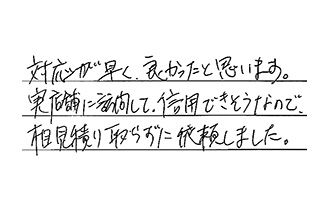 対応が早く、良かったと思います。
実店舗に訪問して、信用できそうなので、
相見積り取らずに依頼しました。